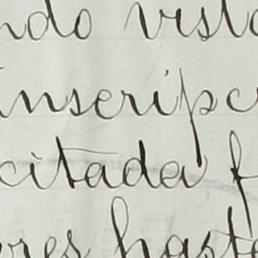 ndo vist
inscripc
citada f
res hast